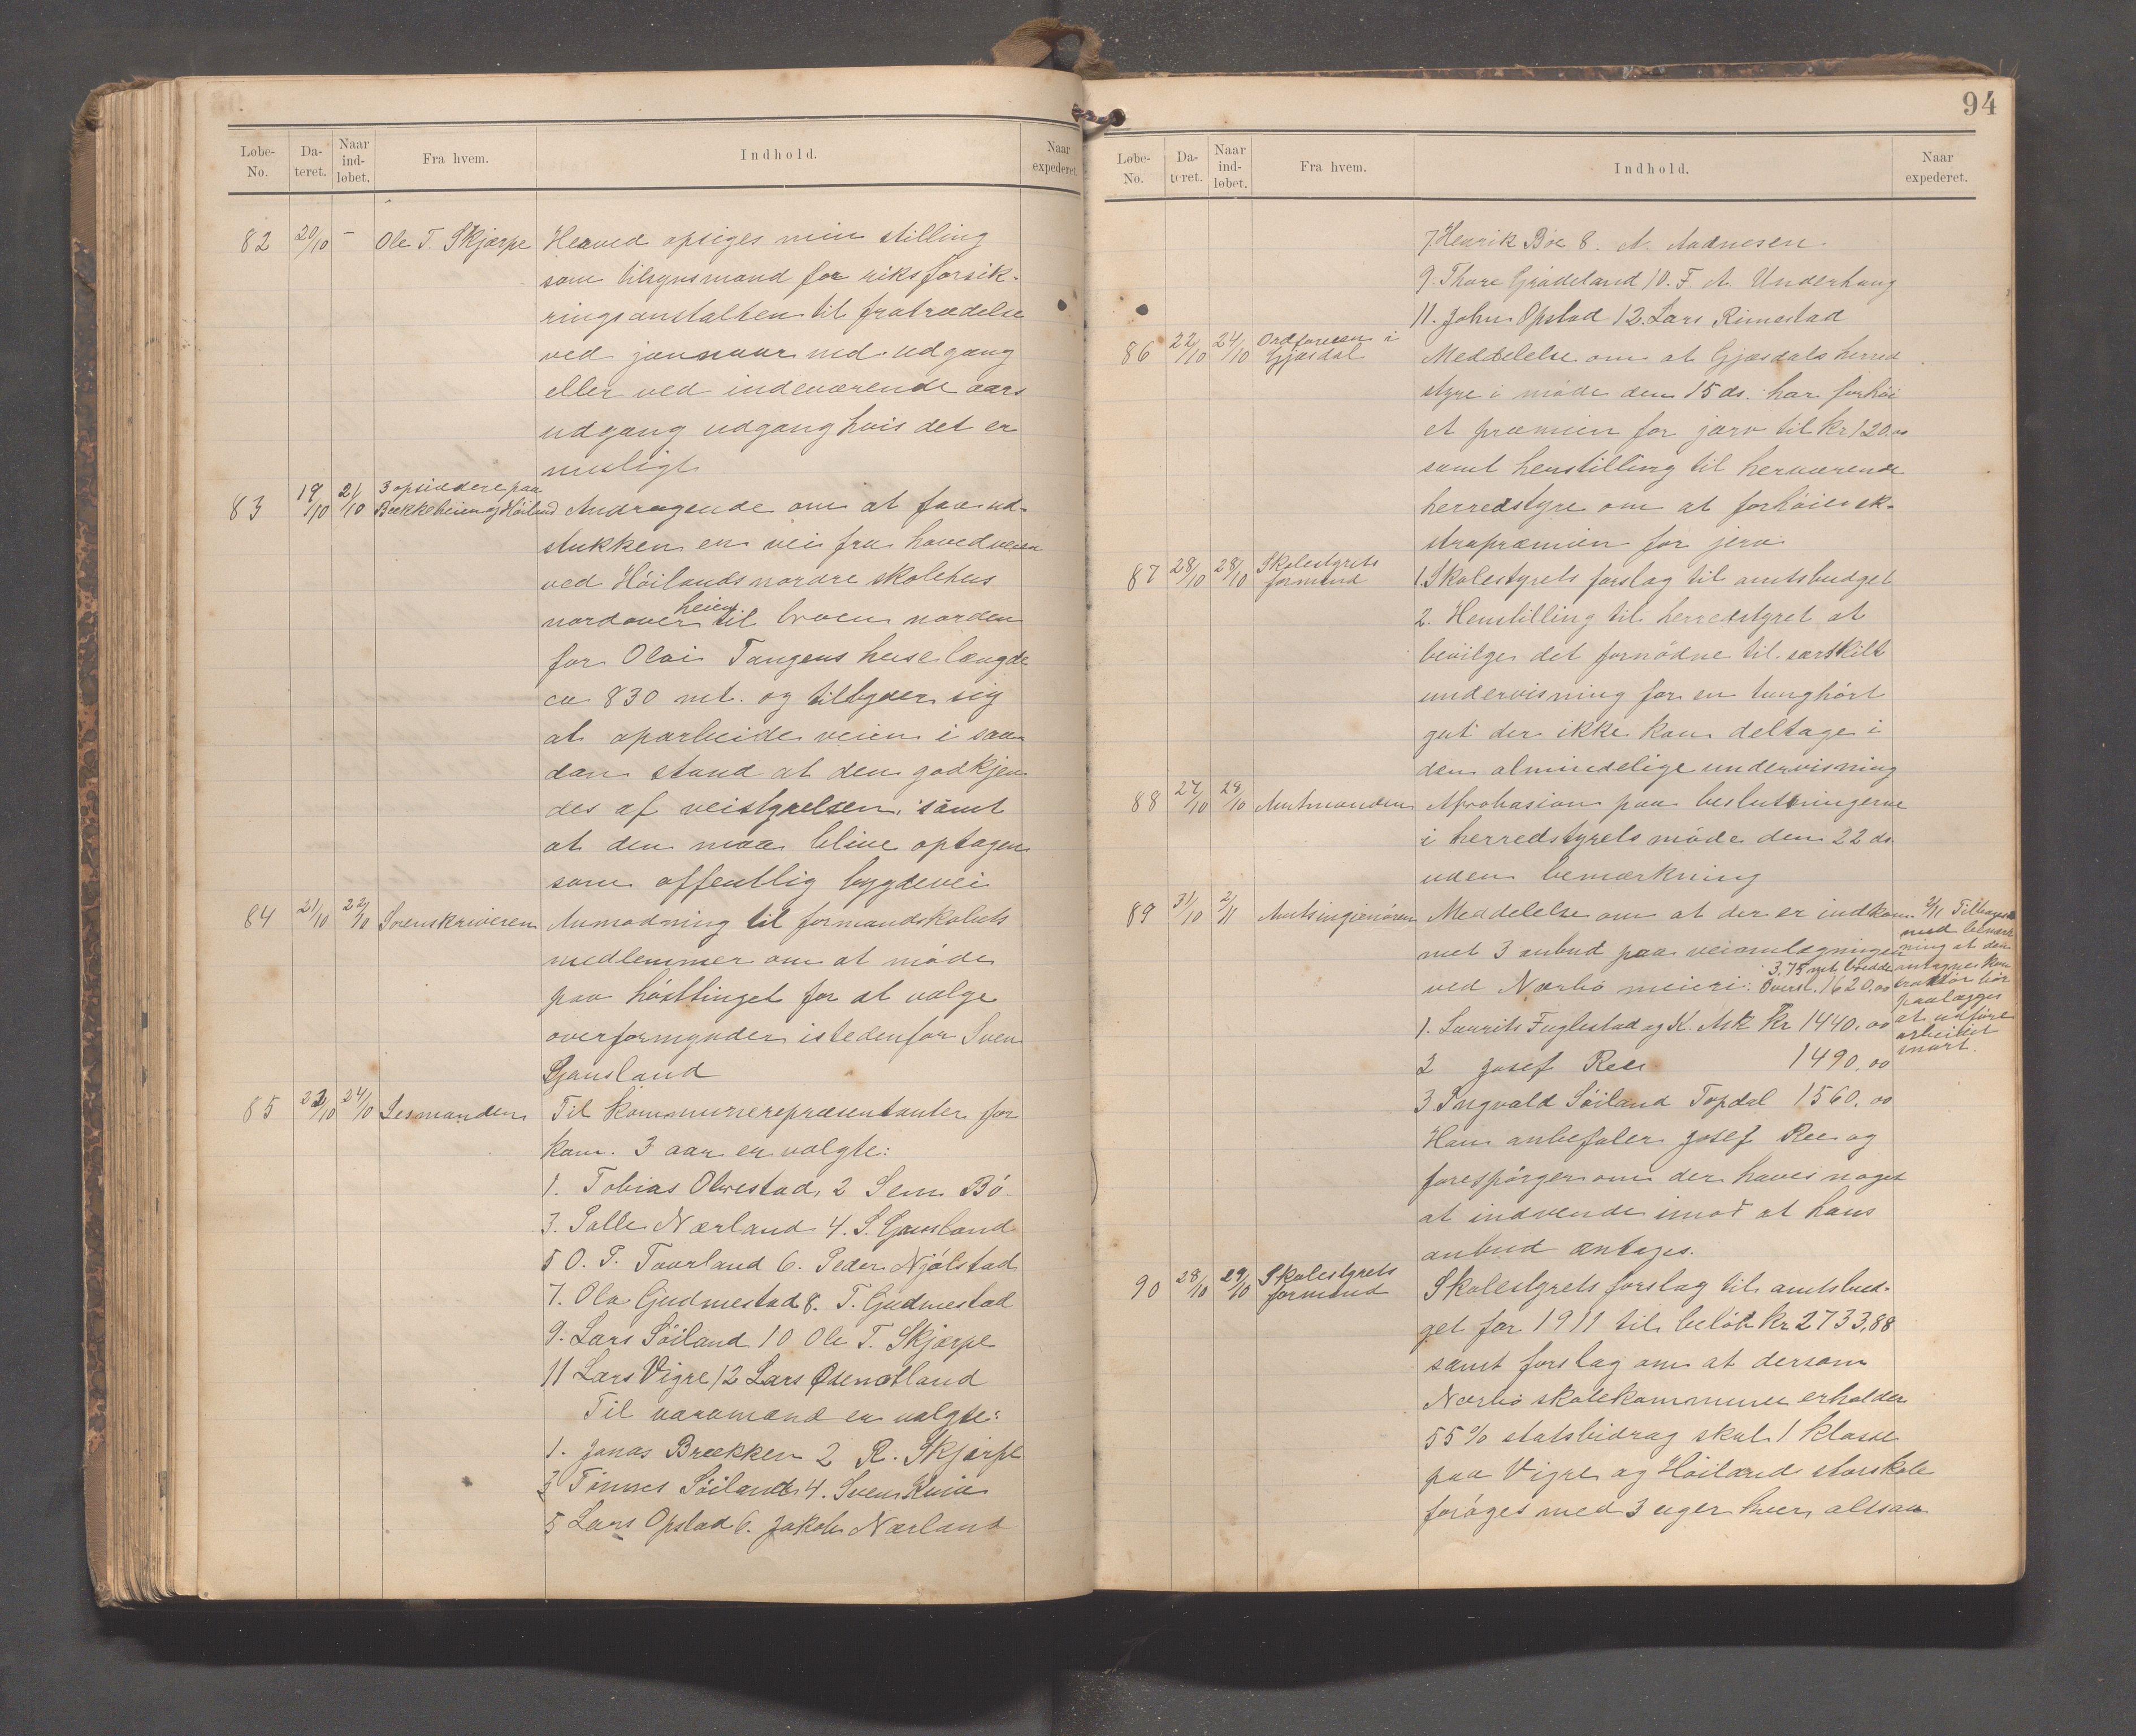 Løbe-No. Da-teret. Naar ind-løbet. Fra hvem. Indhold. Naar expederet.
82 20/10 – Ole T. Skjærpe Herved opsiges min stilling
som tilsynsmand for riksforsik-
ringsanstalten til fratrædelse
ved januar md. udgang
eller ved indeværende aars
udgang udgang hvis det er
muligt
83 19/10 21/10 3 opsiddere paa Brekkeheien og Høiland Andragende om at faa ud-
stukken en vei fra hovedveien
ved Höilands nordre skolehus
nordover heien til broen norden
for Olai Tangens huse længde
ca 830 mt. og tilbyder sig
at oparbeide veien i saa-
dan stand at den godkjen
des af veistyrelsen, samt
at den maa blive optagen
som offentlig bygdevei
84 21/10 22/10 Sorenskriveren Anmodning til formandskabets
medlemmer om at møde
paa høsttinget for at vælge
overformynder istedenfor Sven
Gausland
85 23/10 24/10 Lesmanden Til kommunerepræsentanter for
kom. 3 aar er valgte:
1. Tobias Obrestad, 2 Sem Bö
3. Salle Nærland 4. S. Gausland
5 O. P. Taarland 6. Peder Njølstad
7. Ola Gudmestad 8. T. Gudmestad
9. Lars Söiland 10 Ole T. Skjærpe
11 Lars Vigre 12 Lars Ødemotland
Til varamænd er valgte:
1. Jonas Brækken 2 R. Skjærpe
3 Tønnes Söiland 4. Sven Kvia
5 Lars Opstad 6. Jakob Nærland
94
Løbe-No. Da-teret. Naar ind-løbet. Fra hvem. Indhold. Naar expederet.
7. Henrik Bøe 8. A. Aadnesen.
9. Thore Grødeland 10. F. A. Underhaug
11. John Opstad 12. Lars Rimestad
86 22/10 24/10 Ordføreren i Gjæsdal Meddelelse om at Gjæsdals herred
styre i møde den 15 ds. har forhøi
et præmien for jærv til kr 120.00
samt henstilling til herværende
herredstyre om at forhøie ek-
strapræmien for jerv.
87 28/10 28/10 Skolestyrets formand 1. Skolestyrets forslag til amtsbudget
2. Henstilling til herredstyret at
bevilge det fornødne til særskilt
undervisning for en tunghørt
gut der ikke kan deltage i
den almindelige undervisning
88 27/10 29/10 Amtmanden Aprobasion paa beslutningerne
i herredstyrets møde den 22 ds.
uden bemærkning
89 31/10 2/11 Amtsingeniøren Meddelelse om at der er indkom-
met 3 anbud paa veiomlægningen
ved Nærbø meieri: 3,75 mt bredde Oversl. 1620,00
1. Laurits Fuglestad og K. Ask Kr 1440,00
2 Josef Ree 1490,00
3. Ingvald Söiland Topdal 1560,00
Han anbefaler Josef Ree og
forespørger om der haves noget
at indvende imod at hans
anbud antages.
2/11 Tilbagesendt
med bemærk
ning at den
antagne kon
traktør bør
paalægges
at udføre
arbeidet
snart.
90 28/10 29/10 Skolestyrets formand Skolestyrets forslag til amtsbud-
get for 1911 til beløb Kr 2733,88
samt forslag om at dersom
Nærbø skolekommune erholder
55% statsbidrag skal 1 klasse
paa Vigre og Höiland storskole
forøges med 3 uger hver, altsaa